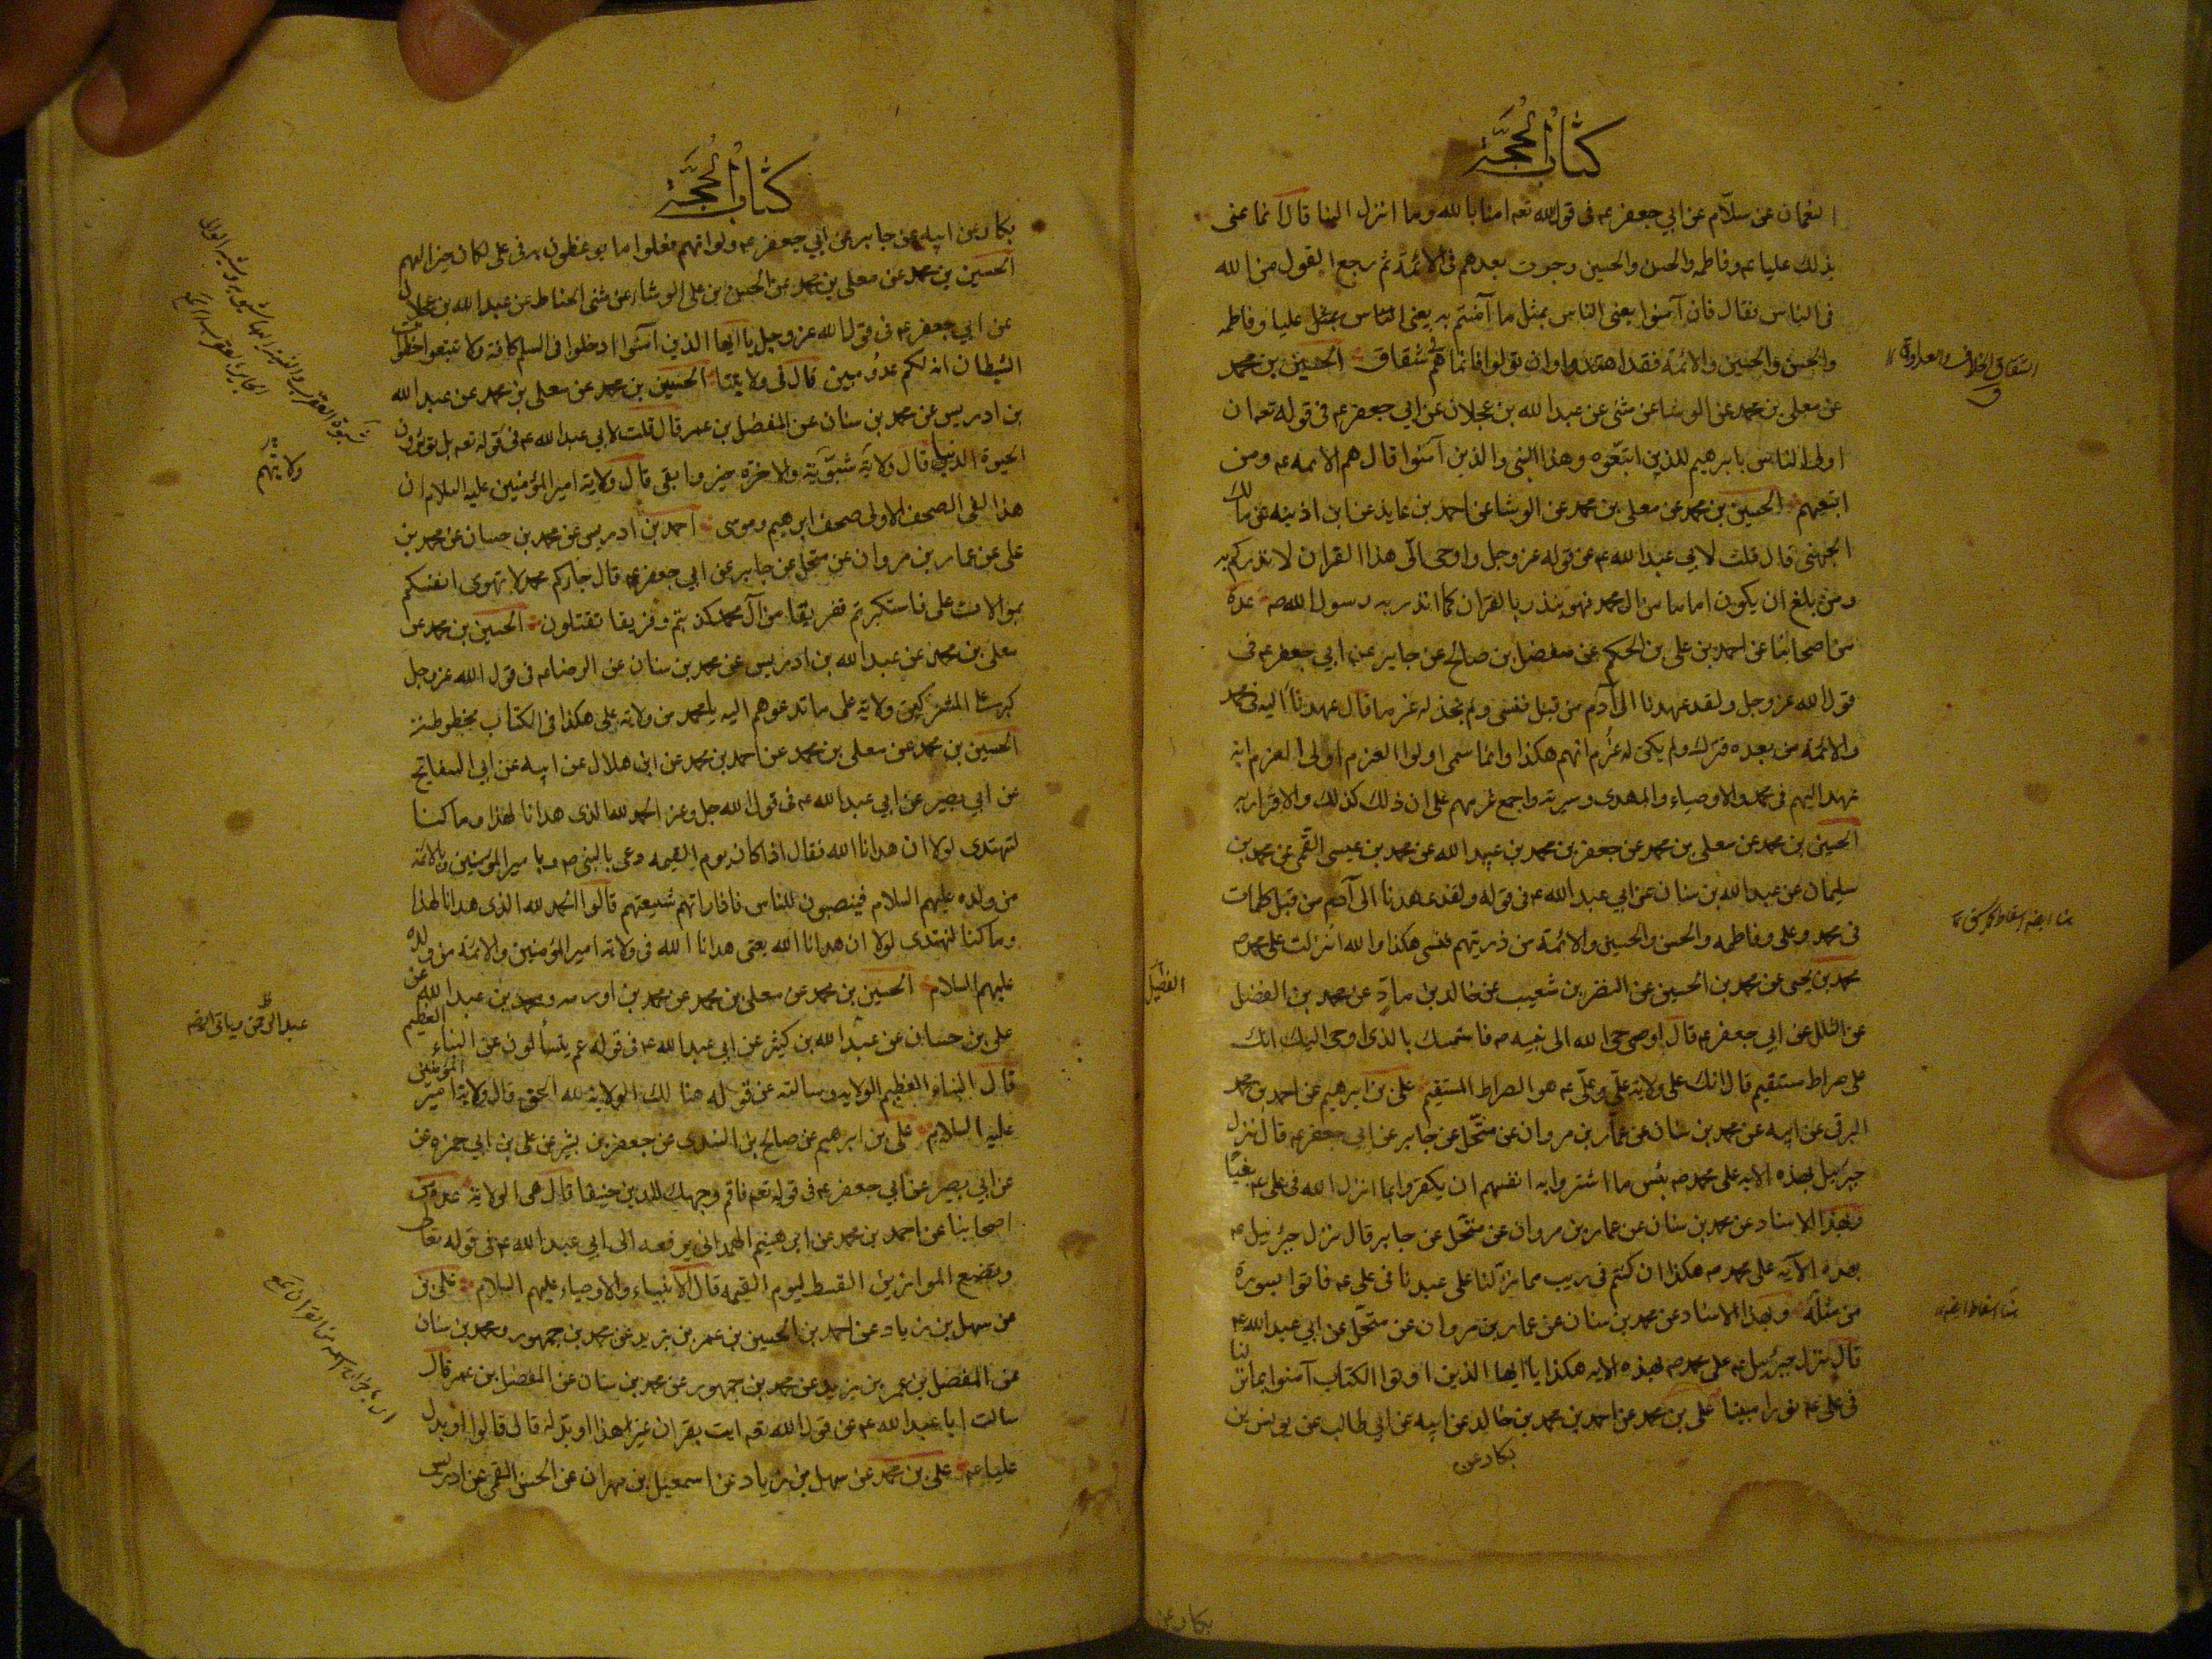 كتاب الحجة
النعمان عن سلام عن ابي جعفر ع في قول الله تعه امنا بالله وما انزل الينا قال انما عنى
بذلك عليا ع وفاطمه والحسن والحسين وجرت بعدهم في الائمة ثم رجع القول من الله
في الناس فقال فان آمنوا يعنى الناس بمثل ما آمنتم به يعنى الناس بمثل عليا وفاطمه
والحسن والحسين والائمة فقد اهتدوا وان تولوا فانما هم في شقاق الحسين بن محمد
عن معلى بن محمد عن الوشا عن مثنى عن عبد الله بن عجلان عن ابي جعفر ع في قوله تعه ان
اولى الناس بابرهيم للذين اتبعوه وهذا النبي والذين آمنوا قال هم الائمه ع ومن
اتبعهم الحسين بن محمد عن معلى بن محمد عن الوشا عن احمد بن عايذ عن ابن اذينه عن مالك
الجهني قال قلت لابي عبد الله ع عن قوله عز وجل واوحى الى هذا القران لانذركم به
ومن بلغ ان يكون اماما من ال محمد فهو ينذر بالقران كما انذر به رسول الله ص عدة
من اصحابنا عن احمد بن على بن الحكم عن مفضل بن صالح عن جابر عن ابي جعفر ع في
قول الله عز وجل ولقد عهدنا الى آدم من قبل فنسى ولم نجد له عزما قال عهدنا اليه في محمد
والائمة من بعده فترك ولم يكن له عزم انهم هكذا وانما سمى اولوا العزم اولى العزم انه
عهد اليهم في محمد والاوصياء والمهدى وسيرته واجمع عزمهم على ان ذلك كذلك والاقرار به
الحسين بن محمد عن معلى بن محمد عن جعفر بن محمد بن عبيد الله عن محمد بن عيسى القمى عن محمد بن
سليمان عن عبد الله بن سنان عن ابي عبد الله ع في قوله ولقد عهدنا الى آدم من قبل كلمات
في محمد وعلى وفاطمه والحسن والحسين والائمة من ذريتهم فنسى هكذا والله انزلت على محمد ص
محمد بن يحيى عن محمد بن الحسين عن النضر بن شعيب عن خالد بن ماد عن محمد بن الفضل
عن الثمالى عن ابي جعفر ع قال اوحى الله الى نبيه ص فاستمسك بالذى اوحى اليك انك
على صراط مستقيم قال انك على ولاية على وعلى ع هو الصراط المستقيم على بن ابرهيم عن احمد بن محمد
البرقى عن ابيه عن محمد بن سنان عن عمار بن مروان عن منخل عن جابر عن ابي جعفر ع قال نزل
جبرئيل بهذه الايه على محمد ص بئس ما اشتروا به انفسهم ان يكفروا بما انزل الله في على ع بغيا
وبهذا الاسناد عن محمد بن سنان عن عمار بن مروان عن منخل عن جابر قال نزل جبرئيل ع
بهذه الآيه على محمد ص هكذا ان كنتم في ريب مما نزلنا على عبدنا في على ع فاتوا بسورة
من مثله وبهذا الاسناد عن محمد بن سنان عن عمار بن مروان عن منخل عن ابي عبد الله ع
قال نزل جبرئيل ع على محمد ص بهذه الايه هكذا يا ايها الذين اوتوا الكتاب آمنوا بما نزلنا
في على ع نورا مبينا على بن محمد عن احمد بن محمد بن خالد عن ابيه عن ابي طالب عن يونس بن
بكار عن
الشقاق الخلاف والعداوة
الفضيل
كتاب الحجة
بكار عن ابيه عن جابر عن ابي جعفر ع ولو انهم فعلوا ما يوعظون به في على لكان خيرا لهم
الحسين بن محمد عن معلى بن محمد عن الحسن بن على الوشاء عن مثنى الحناط عن عبد الله بن عجلان
عن ابي جعفر ع في قول الله عز وجل يا ايها الذين آمنوا ادخلوا في السلم كافة ولا تتبعوا خطوات
الشيطان انه لكم عدو مبين قال في ولايتنا الحسين بن محمد عن معلى بن محمد عن عبد الله
بن ادريس عن محمد بن سنان عن المفضل بن عمر قال قلت لابي عبد الله ع في قوله تعه بل تؤثرون
الحيوة الدنيا قال ولاية شبوية والاخرة خير وابقى قال ولاية امير المؤمنين عليه السلام ان
هذا لفى الصحف الاولى صحف ابرهيم وموسى احمد بن ادريس عن محمد بن حسان عن محمد بن
على عن عمار بن مروان عن منخل عن جابر عن ابي جعفر ع قال جاءكم محمد لا تهوى انفسكم
بموالات على فاستكبرتم ففريقا من آل محمد كذبتم وفريقا تقتلون الحسين بن محمد عن
معلى بن محمد عن عبد الله بن ادريس عن محمد بن سنان عن الرضا ع في قول الله عز وجل
كبر على المشركين ولاية على ما تدعوهم اليه يا محمد من ولاية على هكذا في الكتاب مخطوطة
الحسين بن محمد عن معلى بن محمد عن احمد بن محمد عن ابن هلال عن ابيه عن ابي السفاتج
عن ابي بصير عن ابي عبد الله ع في قول الله جل وعز الحمد لله الذى هدانا لهذا وما كنا
لنهتدى لولا ان هدانا الله فقال اذا كان يوم القيمه دعى بالنبي ص وبامير المؤمنين وبالائمة
من ولده عليهم السلام فينصبون للناس فاذا راتهم شيعتهم قالوا الحمد لله الذى هدانا لهذا
وما كنا لنهتدى لولا ان هدانا الله يعنى هدانا الله في ولاية امير المؤمنين والائمة من ولده
عليهم السلام الحسين بن محمد عن معلى بن محمد عن محمد بن اورمه ومحمد بن عبد الله عن
على بن حسان عن عبد الله بن كثير عن ابي عبد الله ع في قوله عم يتسألون عن النباء العظيم
قال النباء العظيم الولاية وسالته عن قوله هنا لك الولاية لله الحق قال ولاية امير المؤمنين
عليه السلام على بن ابرهيم عن صالح بن السندى عن جعفر بن بشير عن على بن ابي حمزه عن
عن ابي بصير عن ابي جعفر ع في قوله تعه فاقم وجهك للدين حنيفا قال هى الولاية عدة من
اصحابنا عن احمد بن محمد عن ابرهيم الهمدانى يرفعه الى ابي عبد الله ع في قوله تعالى
ونضع الموازين القسط ليوم القيمه قال الانبياء والاوصياء عليهم السلام على بن
عن سهل بن زياد عن احمد بن الحسين بن عمر بن يزيد عن محمد بن جمهور ومحمد بن سنان
عن المفضل بن عمر بن يزيد عن محمد بن جمهور عن محمد بن سنان عن المفضل بن عمر قال
سالت ابا عبد الله ع عن قول الله تعه ايت بقران غير هذا او بدله قال قالوا او بدل
عليا ع على بن محمد عن سهل بن زياد عن اسمعيل بن مهران عن الحسن القمى عن ادريس
ولايتهم
بكار عن